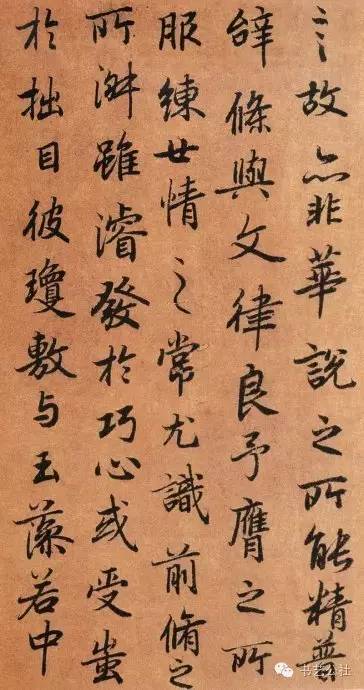 言故亦非華說之所能精普
辭條與文律良予膺之所
服練世情之常尤識前脩之
所淑雖濬發於巧心或受蚩
於拙目彼瓊敷与玉藻若中
书艺公社